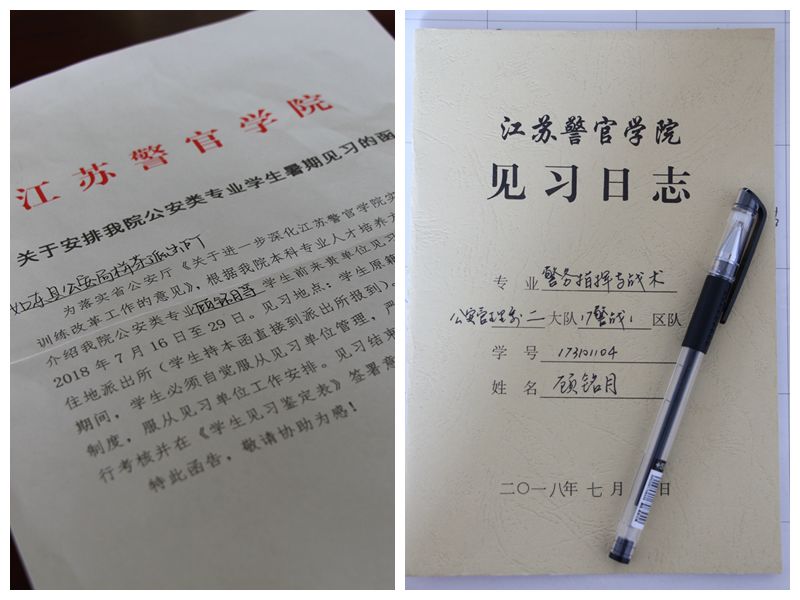 江苏警官学院
关于安排我院公安类专业学生暑期见习的函
如东县公安局栟茶派出所
为落实省公安厅《关于进一步深化江苏警官学院实
训练改革工作的意见》，根据我院本科专业人才培养方
介绍我院公安类专业顾铭月等学生前来贵单位见习
2018年7月16日至29日。见习地点：学生原籍
住地派出所（学生持本函直接到派出所报到）。
期间，学生必须自觉服从见习单位管理，严
制度，服从见习单位工作安排。见习结束
行考核并在《学生见习鉴定表》签署意
特此函告，敬请协助为感！
江苏警官学院
见习日志
专业 警务指挥与战术
公安管理系二大队17警战1区队
学号 173101104
姓名 顾铭月
二〇一八年七月 日